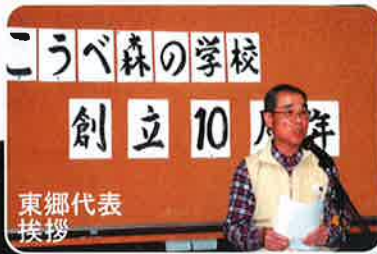 こうべ森の学校
創立10周年
東郷代表
挨拶